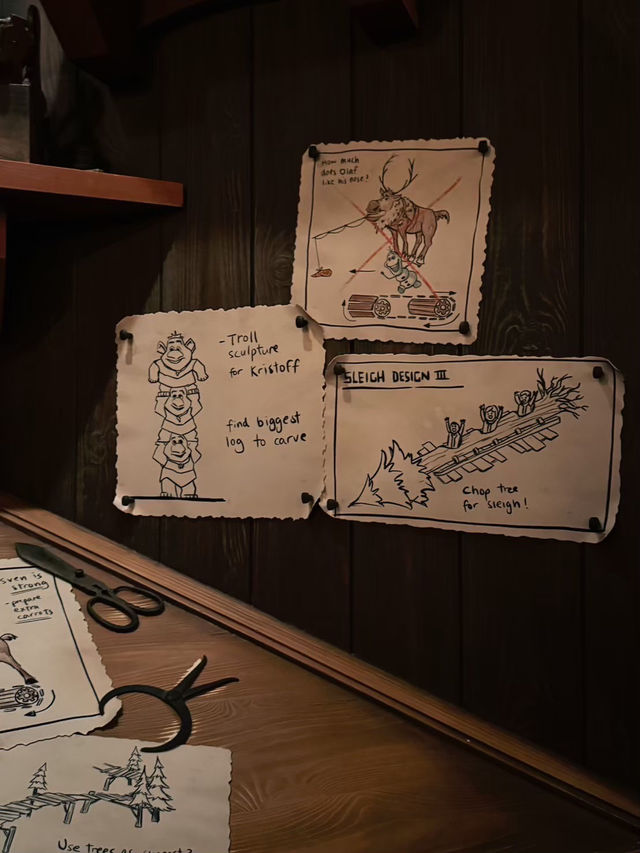 How much
does Olaf
like his nose?
-Troll
sculpture
for Kristoff
find biggest
log to carve
SLEIGH DESIGN III
Chop tree
for sleigh!
Sven is
strong
-prepare
extra
carrots
Use trees as support?